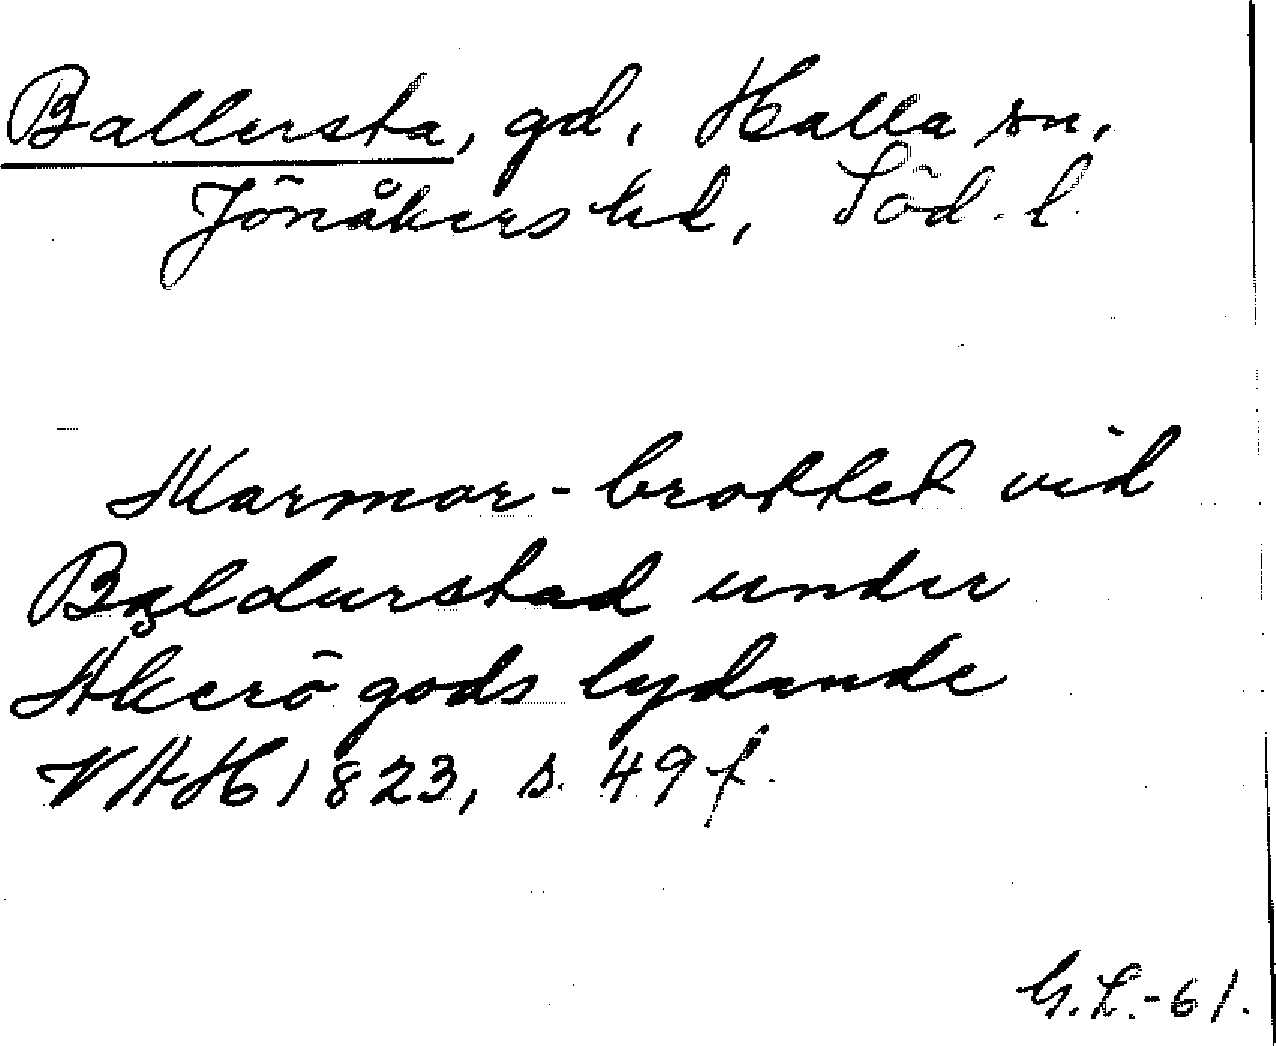 Ballersta, gd, Halla sn,
Jönåkers hd, Söd. l.
Marmor-brottet vid
Baldurstad under
Åkerö gods lydande
VAH 1823, s. 49 f.
G.L.-61.